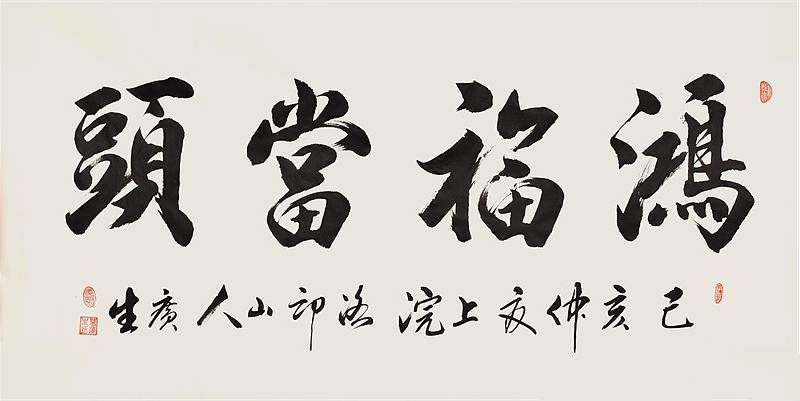 鴻福當頭
己亥仲夏上浣 洛 山人 廣生